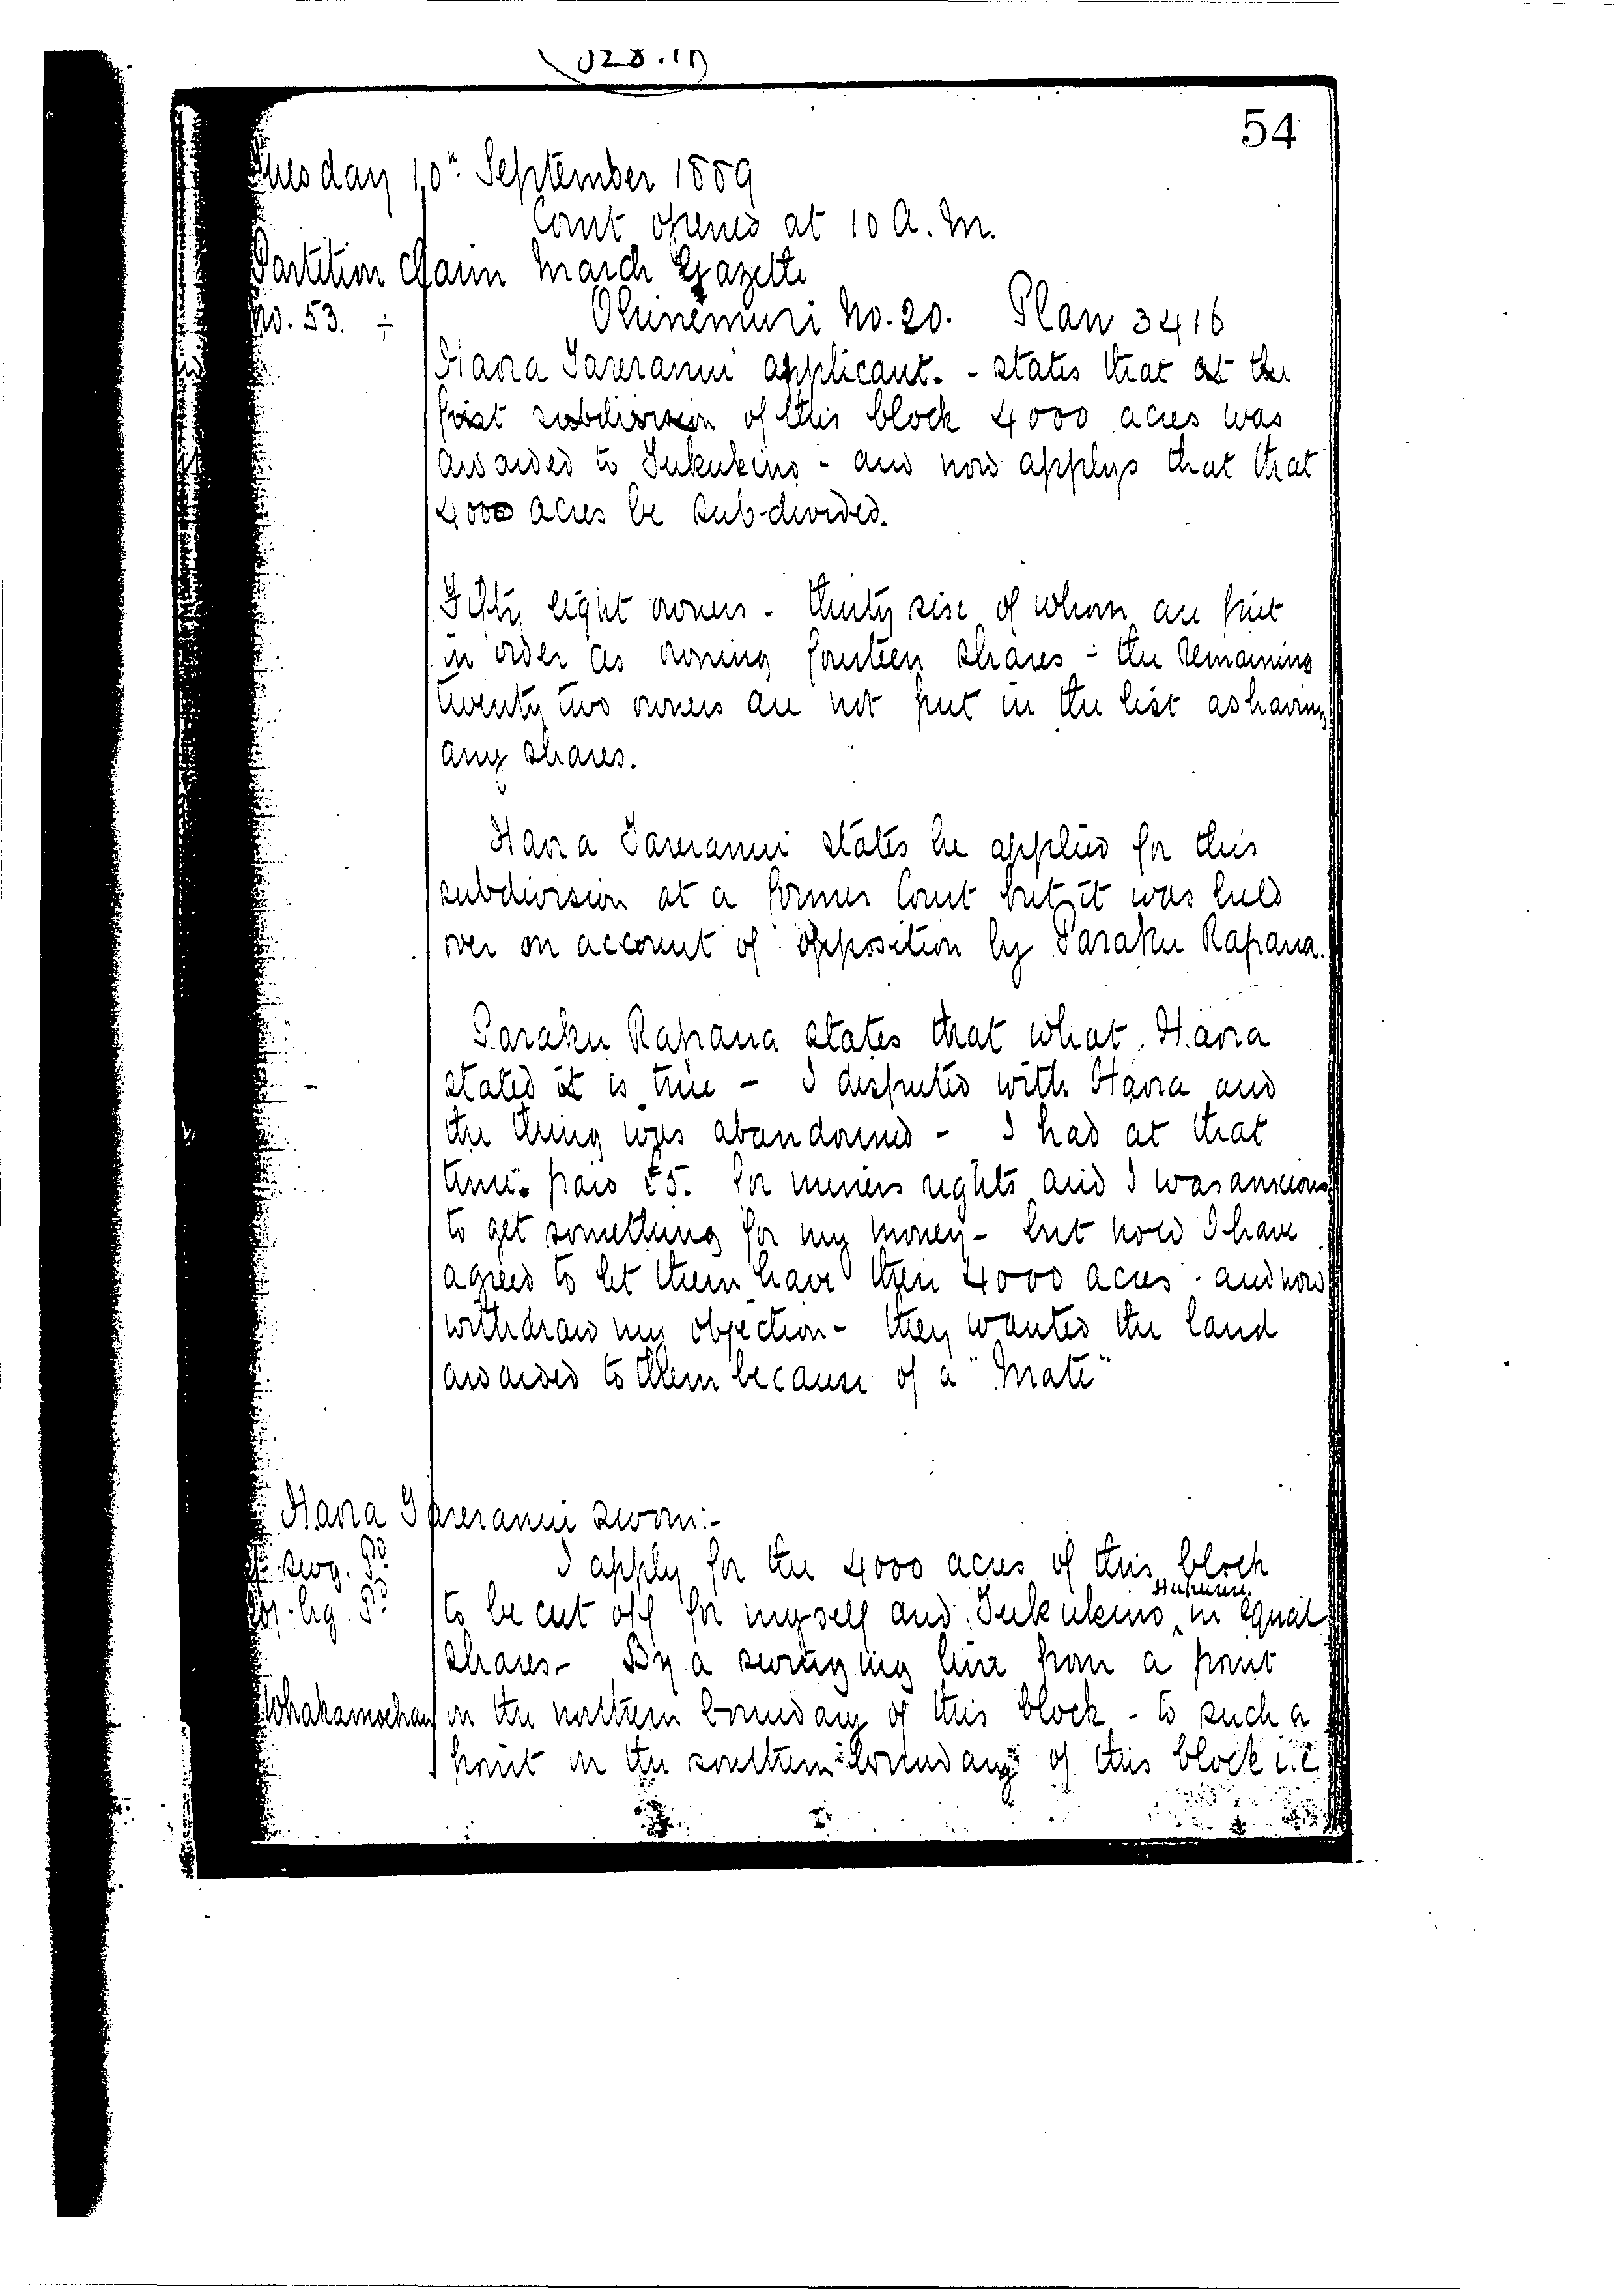 54
Tuesday 10th September 1889
Court opened at 10 A.M.
Partition Claim March Gazette
No. 53. Ohinemuri No. 20. Plan 3416
Haora Tareranui applicant. - states that at the
first subdivision of this block 4000 acres was
awarded to Tukukino - and now applys that that
4000 acres be sub-divided.
Fifty eight owners - thirty six of whom are put
in order as owning fourteen shares - the remaining
twenty two owners are not put in the list as having
any shares.
Haora Tareranui states he applied for this
subdivision at a former Court but it was held
over on account of opposition by Paraku Rapana.
Paraku Rapana states that what Haora
stated is true - I disputed with Haora and
the thing was abandoned - I had at that
time paid £5. for miners rights and I was anxious
to get something for my money - but now I have
agreed to let them have their 4000 acres - and now
withdraw my objection - they wanted the land
awarded to them because of a "Mate"
Haora Tareranui sworn:-
I apply for the 4000 acres of this block
to be cut off for myself and Tukukino in equal
shares - By a swinging line from a point
in the northern boundary of this block - to such a
point in the southern boundary of this block i.e.